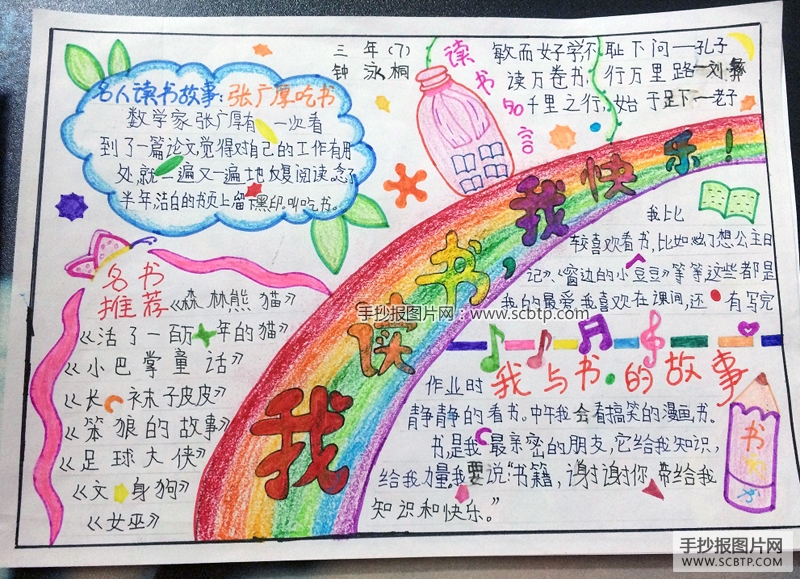 三年(7)
钟泳桐
名人读书故事:张广厚吃书
数学家张广厚有一次看
到了一篇论文觉得对自己的工作有用
处,就一遍又一遍地反复阅读,念了
半年,洁白的书页上留下黑印,叫吃书。
读书名言
敏而好学,不耻下问一孔子
读万卷书,行万里路一刘彝
千里之行,始于足下一老子
我读书,我快乐!
名书
推荐
《森林熊猫》
《活了一百万年的猫》
《小巴掌童话》
《长袜子皮皮》
《笨狼的故事》
《足球大侠》
《文身狗》
《女巫》
我与书的故事
我比
较喜欢看书,比如幻想公主日
记》、《窗边的小豆豆》等等这些都是
我的最爱我喜欢在课间,还有写完
作业时
静静的看书。中午我会看搞笑的漫画书。
书是我最亲密的朋友,它给我知识,
给我力量我要说:“书籍,谢谢你带给我
知识和快乐。”
书
手抄报图片网:www.scbtp.com
手抄报图片网
WWW.SCBTP.COM